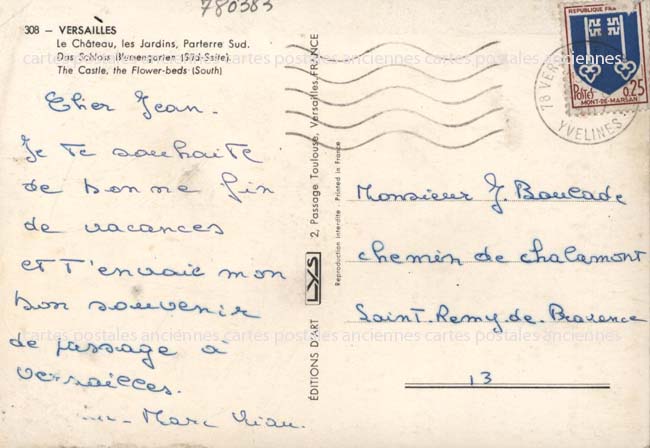 780383
308 — VERSAILLES
Le Château, les Jardins, Parterre Sud.
Das Schloss Blumengarten (Süd-Seite).
The Castle, the Flower-beds (South)
Cher Jean.
Je te souhaite
de bonne fin
de vacances
et t'envoie mon
bon souvenir
de passage à
Versailles.
Marc
ÉDITIONS D'ART LYS 2, Passage Toulouse, Versailles, FRANCE
Reproduction interdite - Printed in France
REPUBLIQUE FRA
Postes 0,25
MONT-DE-MARSAN
78 VER
YVELINES
Monsieur J. Boucade
chemin de chalamont
Saint-Remy-de-Provence
13
cartes postales anciennes cartes postales anciennes cartes postales anciennes
cartes postales anciennes cartes postales anciennes cartes postales anciennes